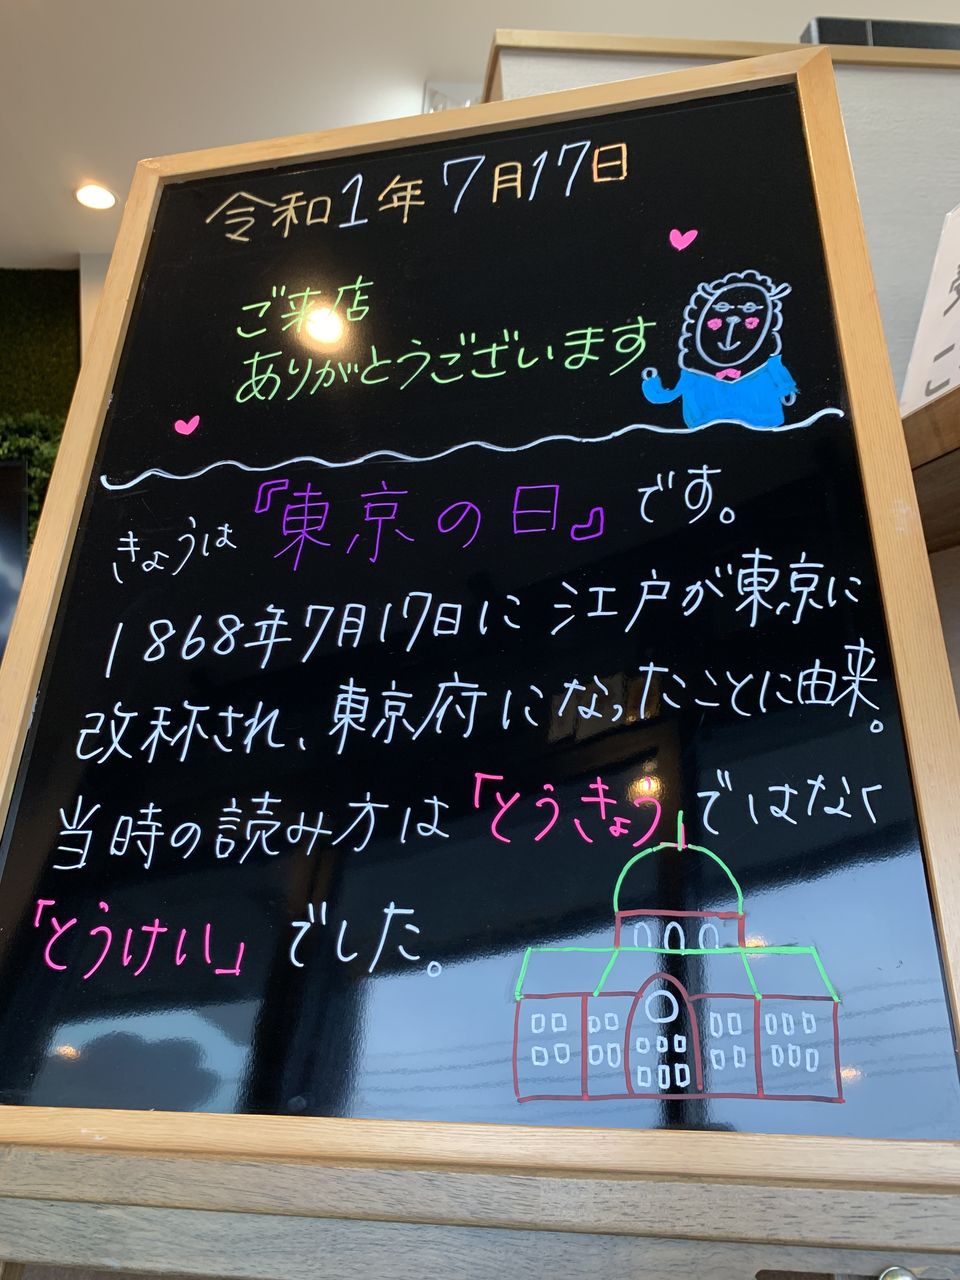 令和1年7月17日
ご来店
ありがとうございます
きょうは『東京の日』です。
1868年7月17日に江戸が東京に
改称され、東京府になったことに由来。
当時の読み方は「とうきょう」ではなく
「とうけい」でした。